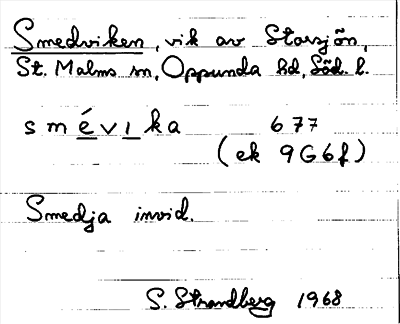 Smedviken, vik av Storsjön,
St. Malms sn, Oppunda hd, Söd. l.
smévıka 677
(ek 9G6f)
Smedja invid.
S. Strandberg 1968